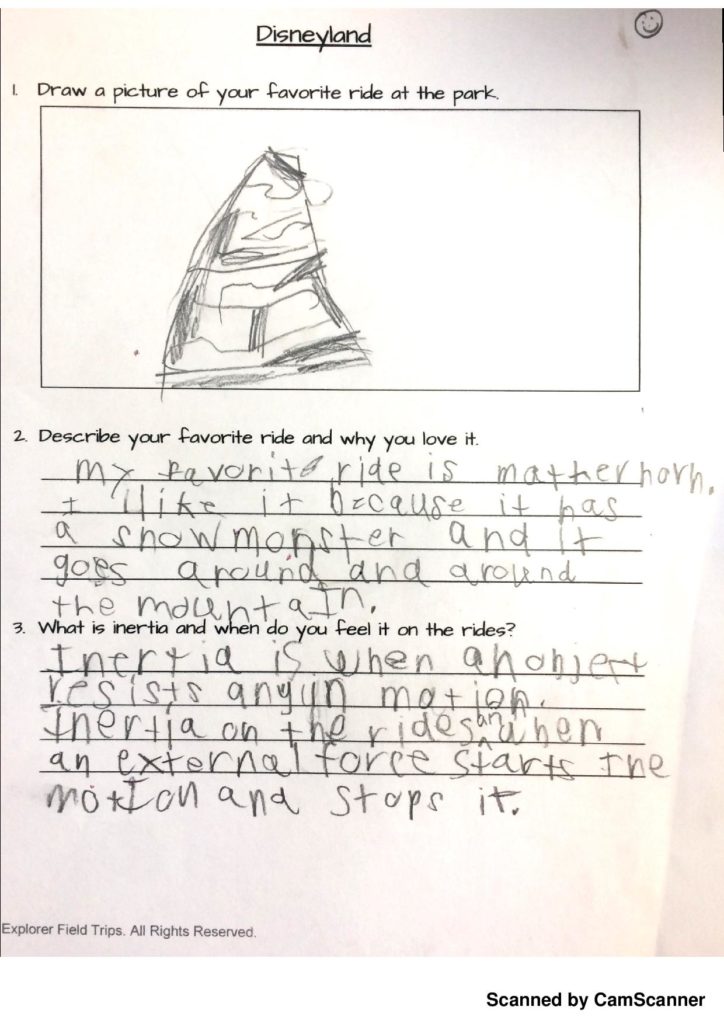 Disneyland
1. Draw a picture of your favorite ride at the park.
2. Describe your favorite ride and why you love it.
My favorite ride is matherhorn.
I like it because it has
a snow monster and it
goes around and around
the mountaIn.
3. What is inertia and when do you feel it on the rides?
Inertia is when an object
resists any in motion.
Inertia on the rides an when
an external force starts the
motIon and stops it.
Explorer Field Trips. All Rights Reserved.
Scanned by CamScanner